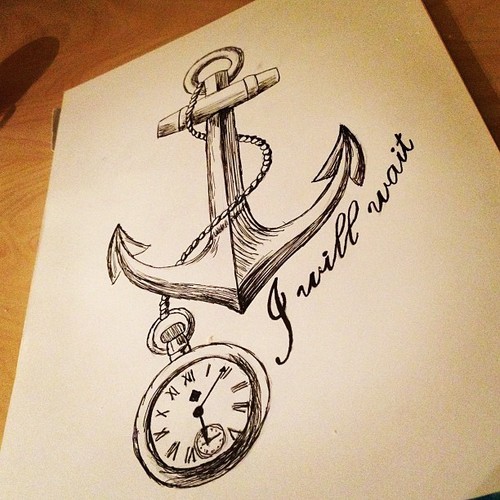 I will wait